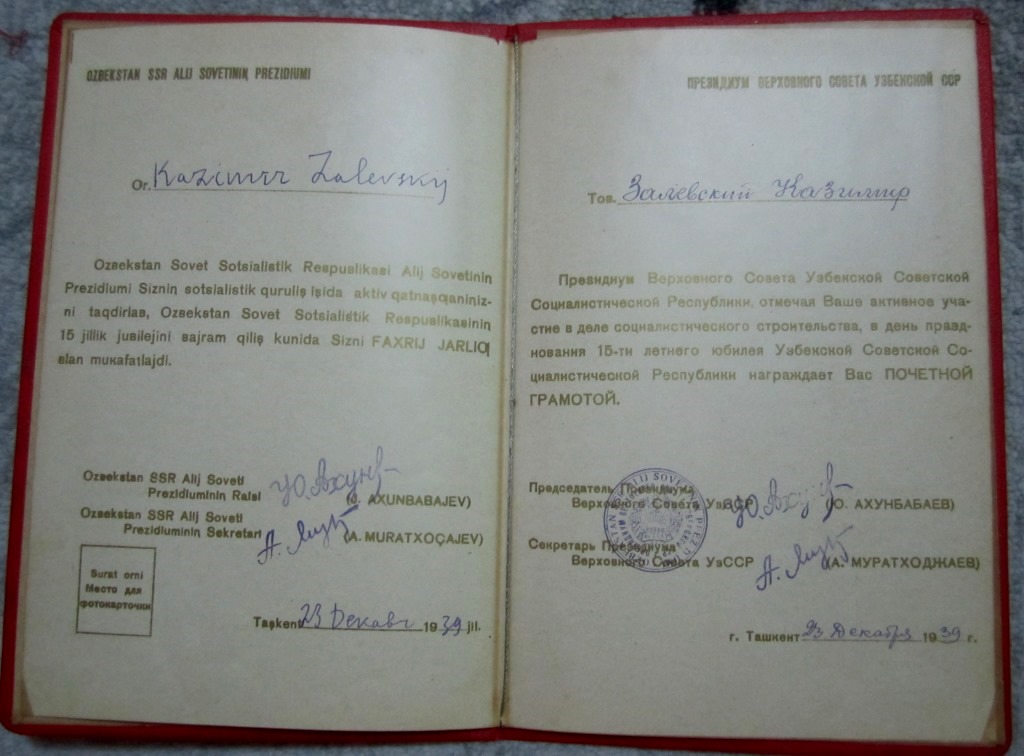 OZBEKSTAN SSR ALIJ SOVETININ PREZIDIUMI
Or. Kazimir Zalevskij
Ozʙekstan Sovet Sotsialistik Respuʙlikasi Alij Sovetinin
Prezidiumi Siznin sotsialistik quruliş işida aktiv qatnaşqaniniz-
ni taqdirlaʙ, Ozʙekstan Sovet Sotsialistik Respuʙlikasinin
15 jillik juʙilejini ʙajram qiliş kunida Sizni FAXRIJ JARLIQ
ʙlan mukafatlajdi.
Ozʙekstan SSR Alij Soveti
Prezidiuminin Raisi
(J. AXUNBABAJEV)
Ozʙekstan SSR Alij Soveti
Prezidiuminin Sekretari
(A. MURATXOÇAJEV)
Surat orni
Место для
фотокарточки
Taşkent 23 Декабр 1939 jil.
ПРЕЗИДИУМ ВЕРХОВНОГО СОВЕТА УЗБЕКСКОЙ ССР
Тов. Залевский Казимир
Президиум Верховного Совета Узбекской Советской
Социалистической Республики, отмечая Ваше активное уча-
стие в деле социалистического строительства, в день празд-
нования 15-ти летнего юбилея Узбекской Советской Со-
циалистической Республики награждает Вас ПОЧЕТНОЙ
ГРАМОТОЙ.
Председатель Президиума
Верховного Совета УзССР
Ю. Ахунб
(Ю. АХУНБАБАЕВ)
Секретарь Президиума
Верховного Совета УзССР
(А. МУРАТХОДЖАЕВ)
г. Ташкент 23 Декабря 1939 г.